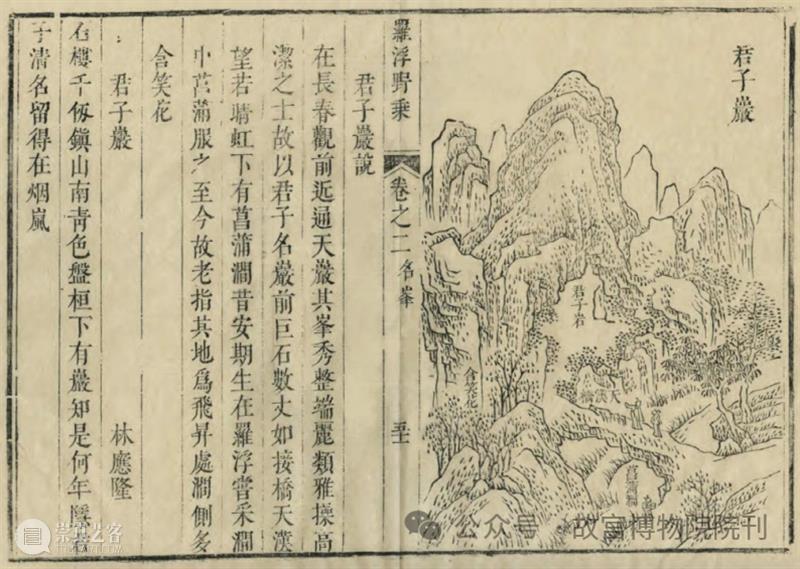 君子巖
君子岩
含笑花
天漢橋
菖蒲澗
羅浮野乘
卷之二 名峯
君子巖說
在長春觀前近通天巖其峯秀整端麗類雅操高
潔之士故以君子名巖前巨石數丈如接橋天漢
望若晴虹下有菖蒲澗昔安期生在羅浮嘗采澗
中菖蒲服之至今故老指其地爲飛昇處澗側多
含笑花
君子巖 林應隆
石樓千仭鎭山南靑色盤桓下有巖知是何年隱君
子清名留得在烟嵐
公众号 · 故宫博物院院刊
崇真艺客